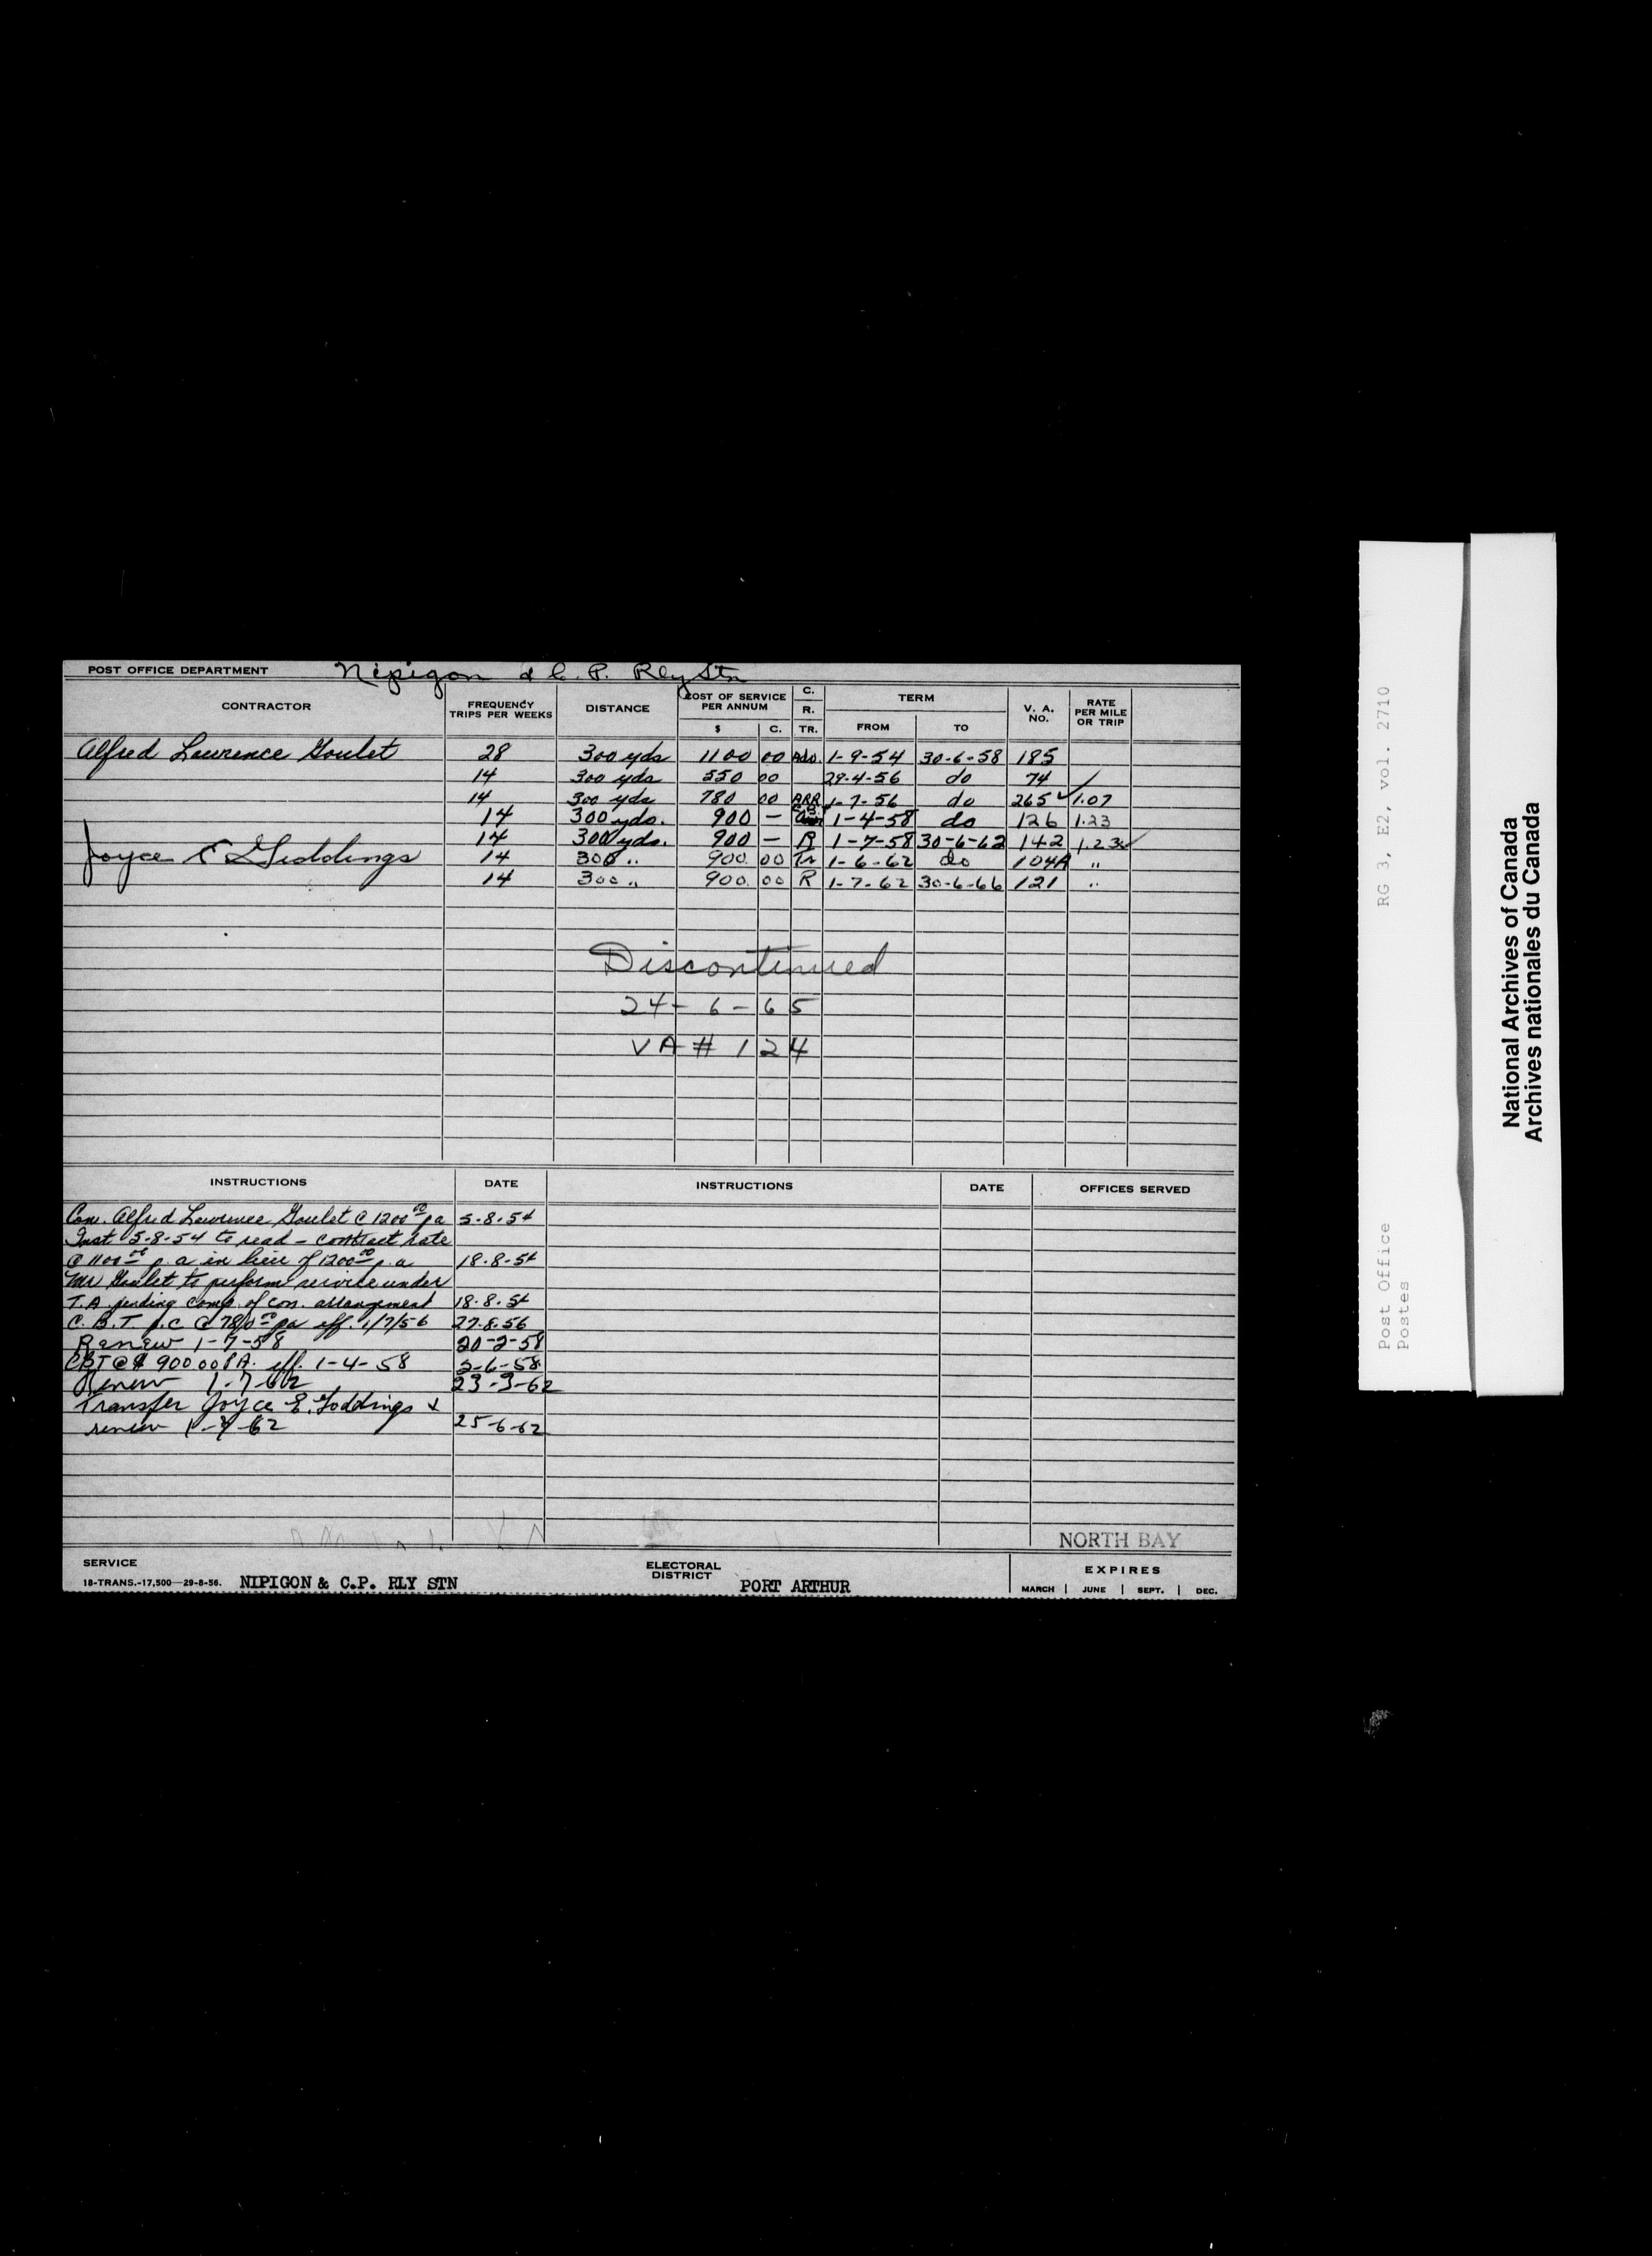 POST OFFICE DEPARTMENT Nipigon & C. P. Rly Stn
CONTRACTOR FREQUENCY TRIPS PER WEEKS DISTANCE COST OF SERVICE PER ANNUM $ C. C. R. TR. TERM FROM TO V. A. NO. RATE PER MILE OR TRIP
Alfred Lawrence Goulet 28 300 yds 1100 00 Adv. 1-9-54 30-6-58 185
14 300 yds 550 00 29-4-56 do 74
14 300 yds 780 00 ARR 1-7-56 do 265 ✓ 1.07
14 300 yds. 900 — 1-4-58 do 126 1.23
14 300 yds. 900 — R 1-7-58 30-6-62 142 1.23 ✓
Joyce E Giddings 14 300 " 900 00 Tr 1-6-62 do 104A "
14 300 " 900 00 R 1-7-62 30-6-66 121 "
Discontinued
24-6-65
VA # 124
INSTRUCTIONS DATE INSTRUCTIONS DATE OFFICES SERVED
Con. Alfred Lawrence Goulet @ 1200 00 pa 5-8-54
Inst 5-8-54 to read - contract rate
@ 1100 00 p.a in lieu of 1200 00 p.a 18-8-54
Mr Goulet to perform service under
T.A pending comp. of con. arrangement 18.8.54
C.B.T. p.c @ 780 00 pa eff. 1/7/56 27.8.56
Renew 1-7-58 20-2-58
CBT @ $ 900 00 P.A. eff. 1-4-58 2-6-58
Renew 1-7-62 23-3-62
Transfer Joyce E. Goddings &
renew 1-7-62 25-6-62
NORTH BAY
SERVICE
18-TRANS.-17,500—29-8-56. NIPIGON & C.P. RLY STN ELECTORAL DISTRICT PORT ARTHUR EXPIRES
MARCH | JUNE | SEPT. | DEC.
Post Office RG 3, E2, vol. 2710
Postes
National Archives of Canada
Archives nationales du Canada